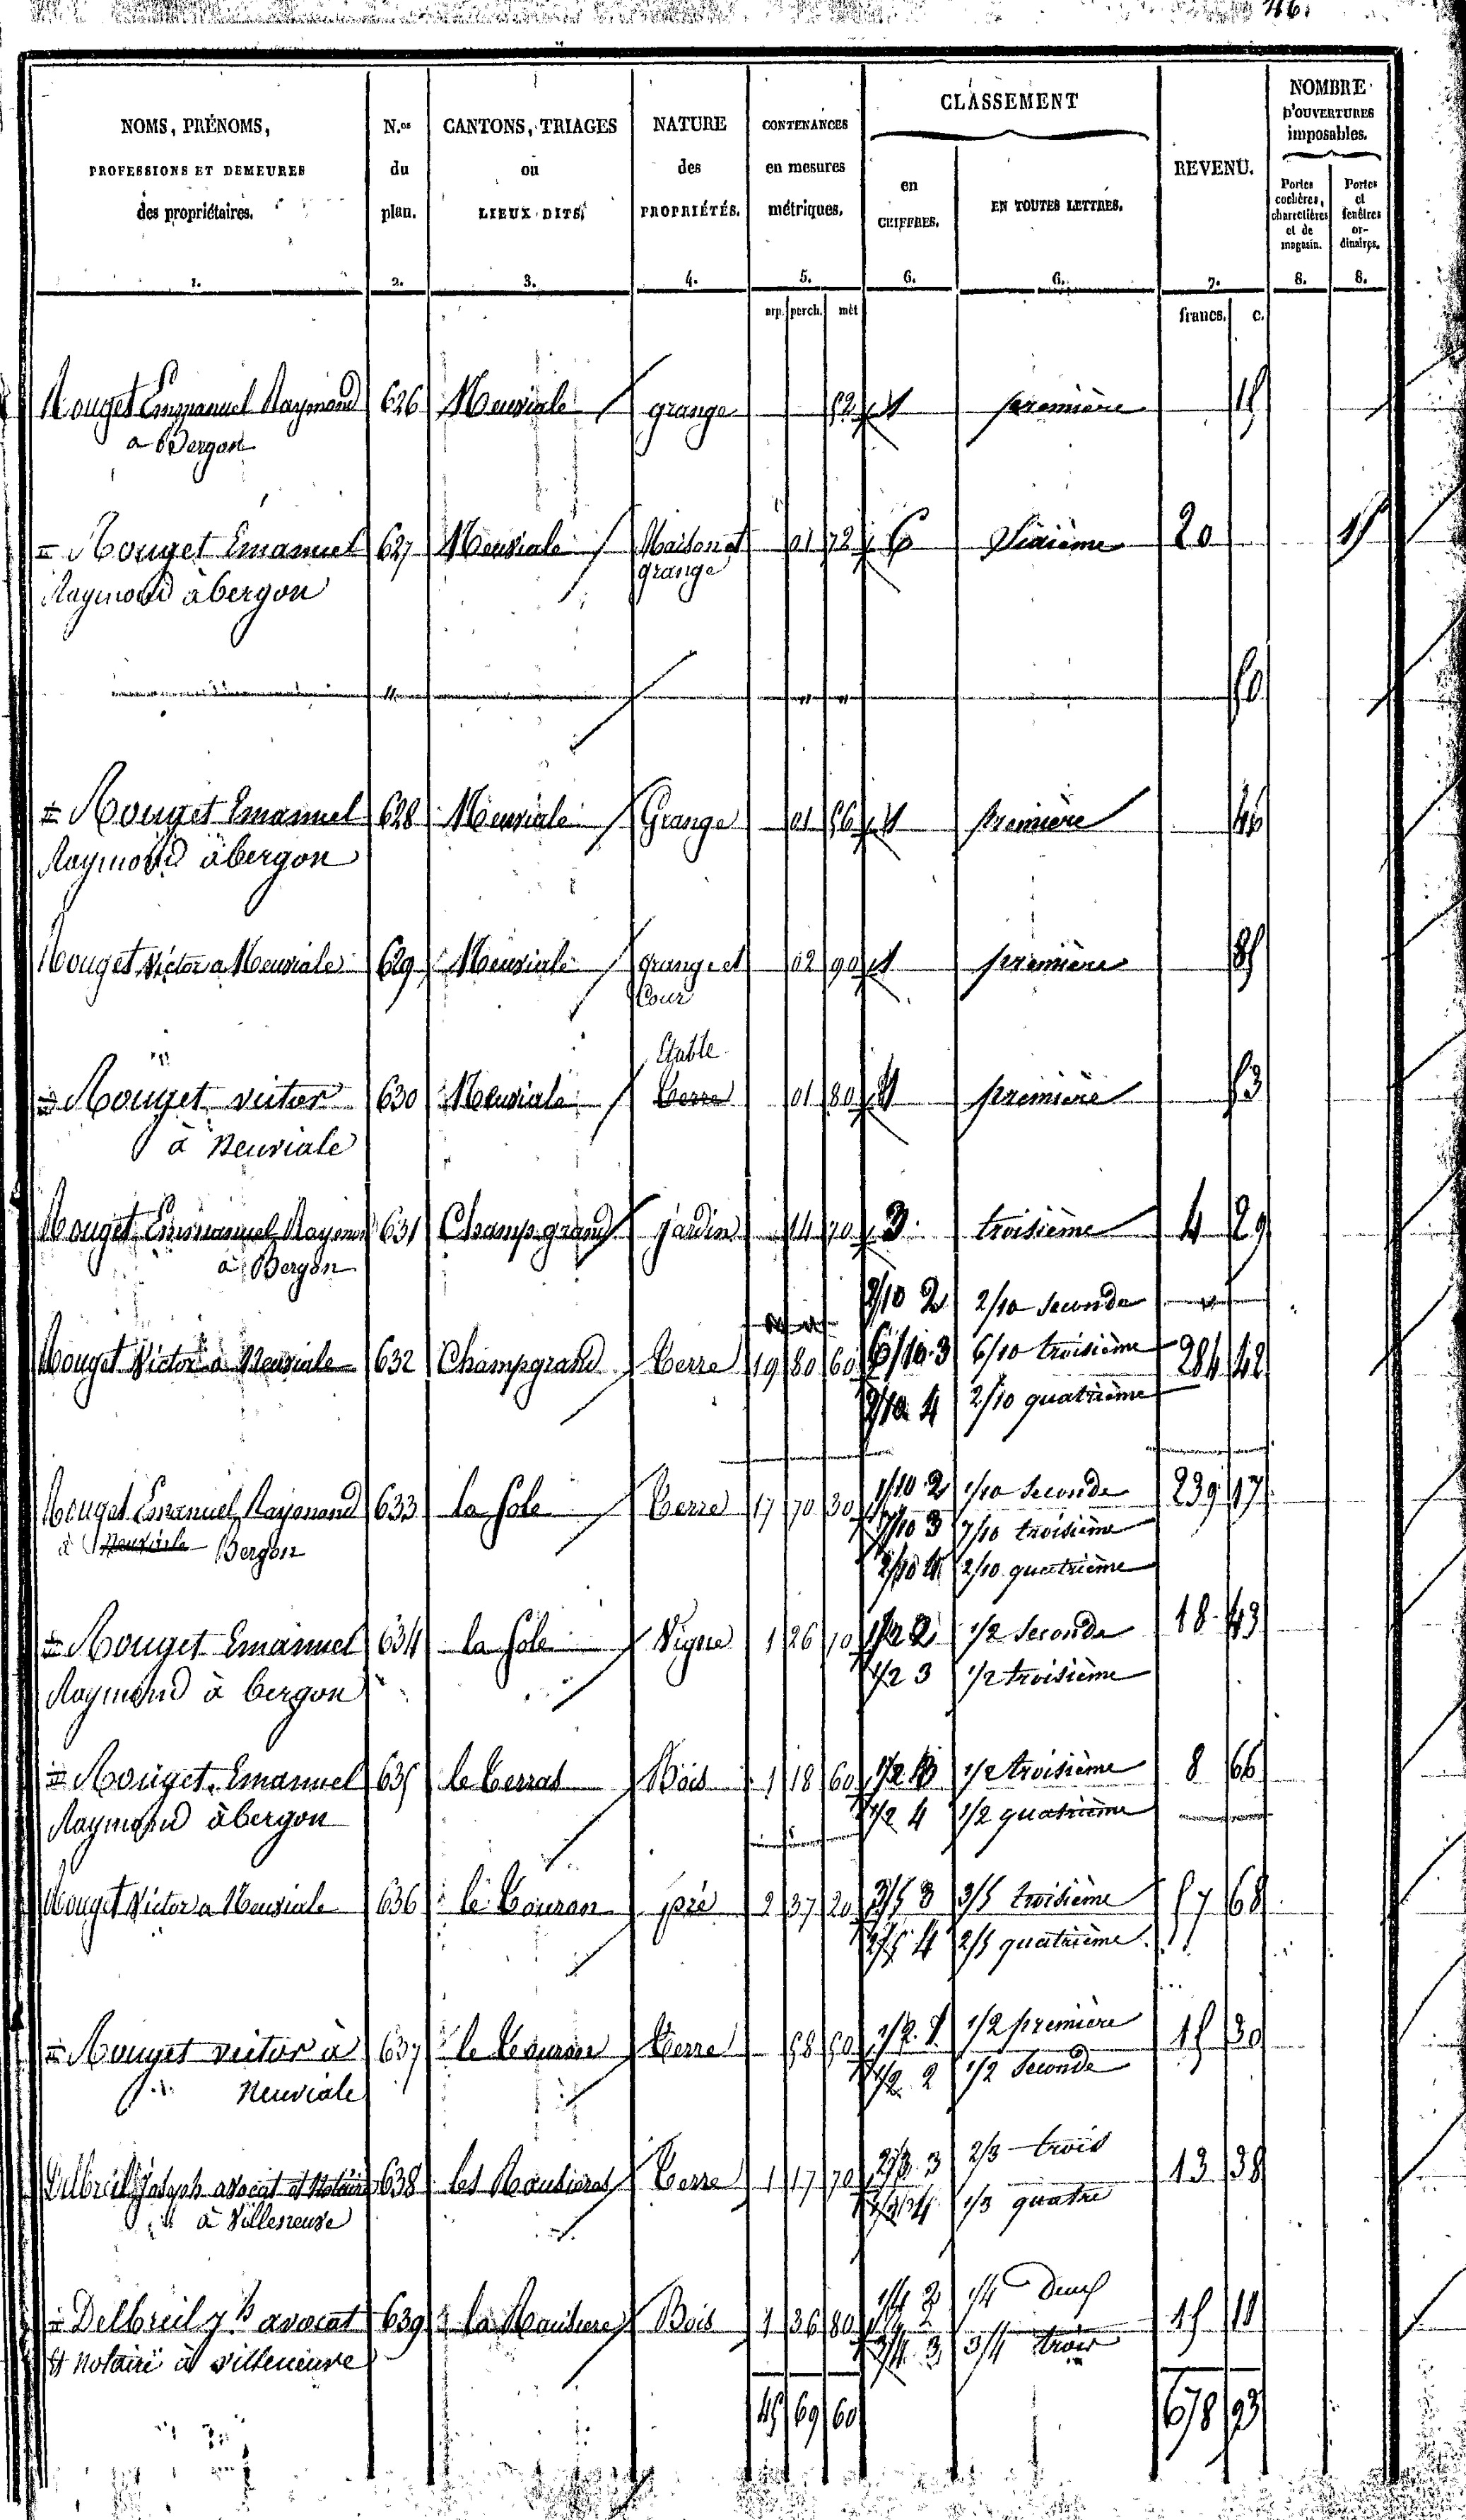 46.
NOMS, PRÉNOMS,
PROFESSIONS ET DEMEURES
des propriétaires.
1.
N.os
du
plan.
2.
CANTONS, TRIAGES
ou
LIEUX DITS.
3.
NATURE
des
PROPRIÉTÉS.
4.
CONTENANCES
en mesures
métriques.
5.
CLASSEMENT
en
CHIFFRES.
6.
EN TOUTES LETTRES.
6.
REVENU.
7.
NOMBRE
D'OUVERTURES
imposables.
Portes
cochères,
charretières
et de
magasin.
8.
Portes
et
fenêtres
or-
dinaires.
8.
arp. perch. mèt francs. c.
Rouget Emmanuel Raymond 626 Neuviale grange 52 1 première 15
a Bergon
= Rouget Emanuel 627 Neuviale Maison et 01 72 6 Sixième 20 15
Raymond à bergon grange
" " " 50
= Rouget Emanuel 628 Neuviale Grange 01 56 1 première 46
Raymond à bergon
Rouget Victor a Neuviale 629 Neuviale grange et 02 90 1 première 85
Cour
Etable
= Rouget victor 630 Neuviale Terre 01 80 1 première 53
à Neuviale
Rouget Emmanuel Raymond 631 Champ grand jardin 14 70 3 troisième 4 29
à Bergon
2/10 2 2/10 Seconde
Rouget Victor a Neuviale 632 Champgrand Terre 19 80 60 6/10 3 6/10 troisième 284 42
2/10 4 2/10 quatrième
Rouget Emanuel Raymond 633 la Sole Terre 17 70 30 1/10 2 1/10 Seconde 239 17
à Neuviale Bergon 7/10 3 7/10 troisième
2/10 4 2/10 quatrième
= Rouget Emanuel 634 la Sole Vigne 1 26 10 1/2 2 1/2 Seconde 18 43
Raymond à bergon 1/2 3 1/2 troisième
= Rouget Emanuel 635 le Terrat Bois 1 18 60 1/2 3 1/2 troisième 8 66
Raymond à bergon 1/2 4 1/2 quatrième
Rouget Victor a Neuviale 636 le Couron pré 2 37 20 3/5 3 3/5 troisième 57 68
2/5 4 2/5 quatrième
= Rouget victor à 637 le Couron Terre 58 50 1/2 1 1/2 première 15 30
Neuviale 1/2 2 1/2 Seconde
Delbreil Joseph avocat et Notaire 638 les Terre 1 17 70 2/3 3 2/3 trois 13 38
à Villeneuve 1/3 4 1/3 quatre
= Delbreil jh avocat 639 la Bois 1 36 80 1/4 2 1/4 Deux 15 11
et notaire à villeneuve 3/4 3 3/4 trois
45 69 60 678 93